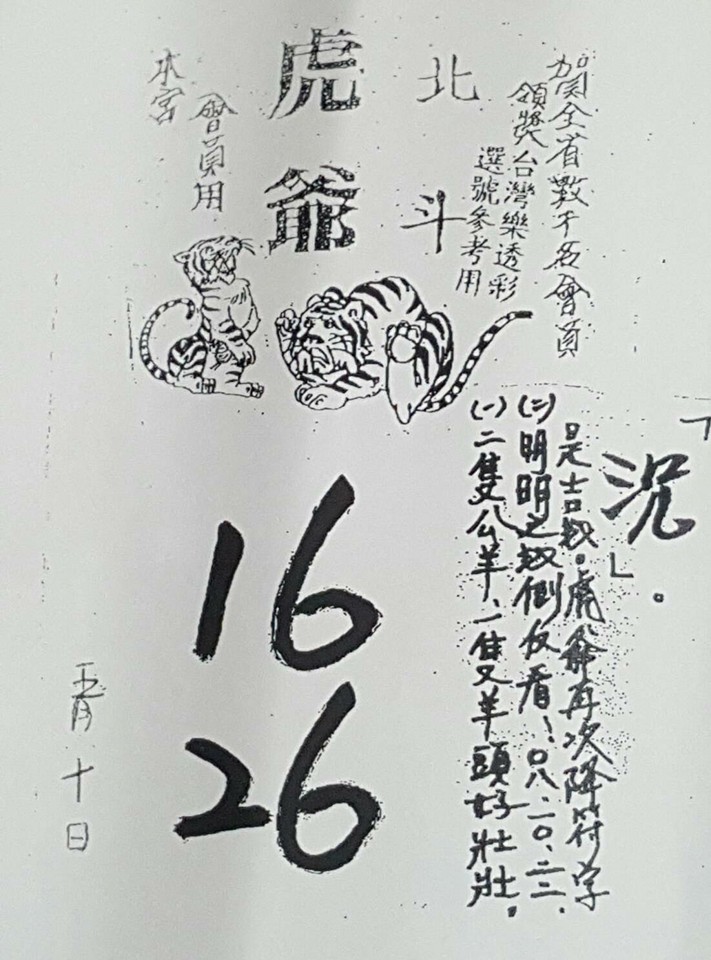 賀全省數千名會員
領獎台灣樂透彩
選號參考用
北斗
虎爺
會員用
本宮
(一)二隻公羊、一隻又羊頭好壯壯。
(二)明明之数倒反看!〇八.一〇.二二.
是吉数。虎爺再次降符字
「況」。
16
26
五月十日